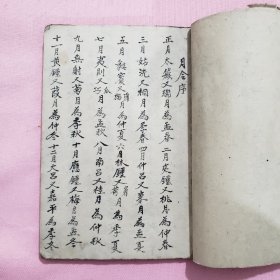 月令序
正月太簇又端月為孟春二月夾鐘又桃月為仲春
三月姑洗又桐月為季春四月仲呂又麥月為孟夏
五月蕤賓又月為仲夏六月林鐘又月為季夏
七月夷則又巧月為孟秋八月南呂又桂月為仲秋
九月無射又菊月為季秋十月應鐘又梅月為孟冬
十一月黃鐘又葭月為仲冬十二月大呂又嘉平為季冬